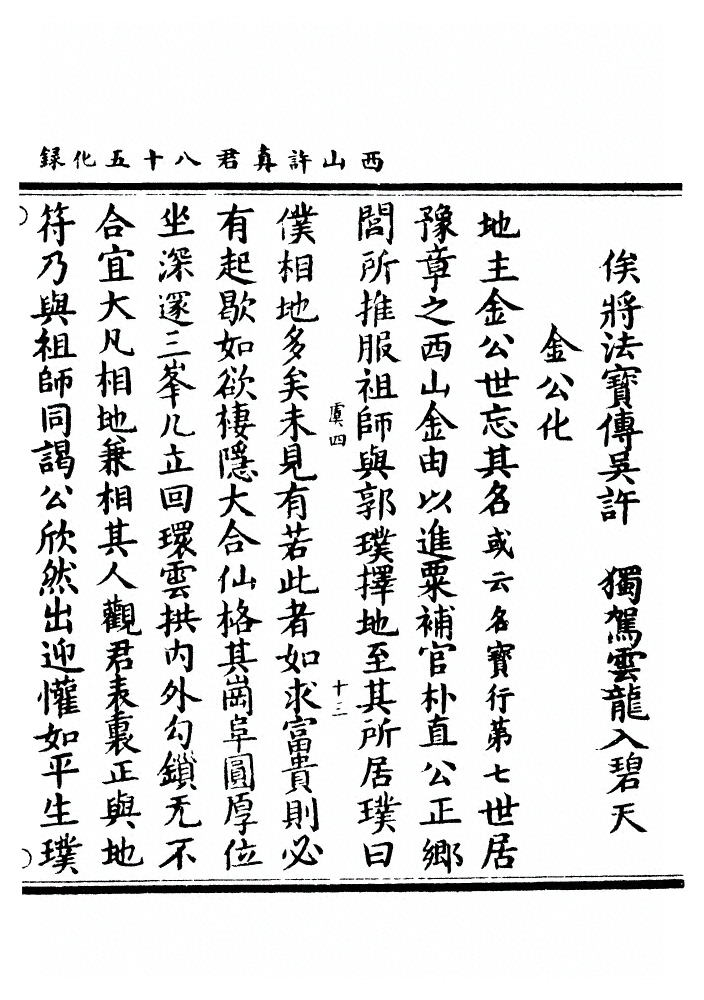 西山許真君八十五化録
俟將法寶傳吳許　獨駕雲龍入碧天
金公化
地主金公世忘其名或云名寶行第七世居
豫章之西山金由以進粟補官朴直公正鄉
閭所推服祖師與郭璞擇地至其所居璞曰
虞四　十三
僕相地多矣未見有若此者如求富貴則必
有起歇如欲棲隱大合仙格其崗阜圓厚位
坐深邃三峯几立回環雲拱内外勾鎖无不
合宜大凡相地兼相其人觀君表裏正與地
符乃與祖師同謁公欣然出迎懽如平生璞